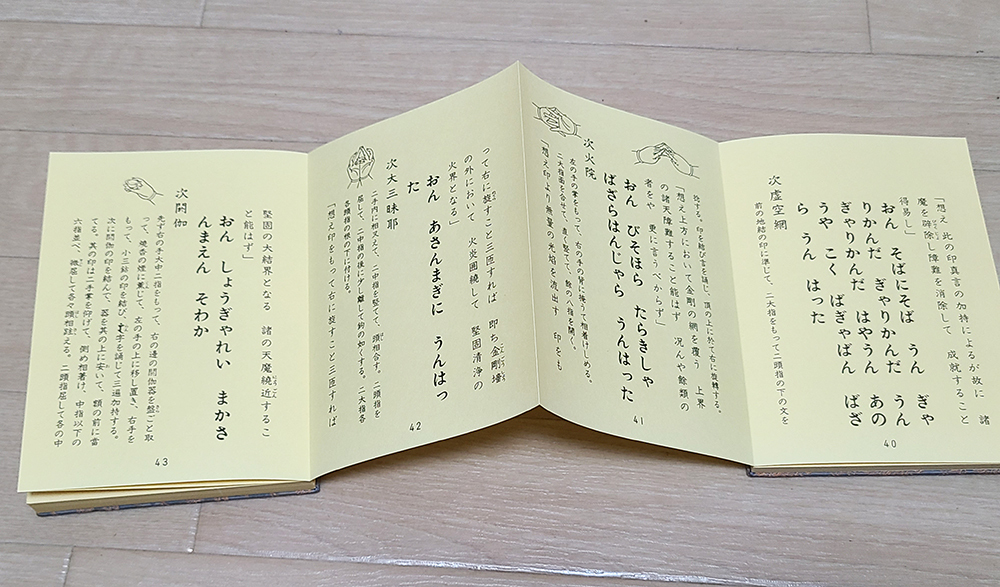 「想え 此の印真言の加持によるが故に 諸
魔を砕除し障難を消除して 成就すること
得易し」
おん そばにそば うん ぎゃ
りかんだ ぎゃりかんだ うん
ぎゃりかんだ はやうん あの
うや こく ばぎゃばん ばざ
ら うん はった
次虚空網
前の地結の印に準じて、二大指をもって二頭指の下の文を
40
捻する。印を結び言を誦し、頂の上に於て右に旋転する。
「想え上方において金剛の網を覆う 上界
の諸天障難すること能はず 況んや餘類の
者をや 更に言うべからず」
次火院
おん びそほら たらきしゃ
ばざらはんじゃら うんはった
左の手の掌をもって、右の手の背に掩うて相着けしめる。
二大指面を合せて、直く竪てて、餘の八指を開く。
「想え印より無量の光焰を流出す 印をも
41
って右に旋すこと三匝すれば 即ち金剛墻
の外において 火炎囲繞して 堅固清浄の
火界となる」
おん あさんまぎに うんはっ
た
次大三昧耶
二手内に相叉えて、二中指を竪てて、頭相合す。二頭指を
屈して、二中指の後に少し離して鈎の如くする。二大指各
各頭指の根の下に付ける。
「想え印をもって右に旋すこと三匝すれば
42
堅固の大結界となる 諸の天魔繞近するこ
と能はず」
おん しょうぎゃれい まかさ
んまえん そわか
次閼伽
先ず右の手大中二指をもって、右の邊の閼伽器を盤ごと取
って、焼香の煙に薫じて、左の手の上に移し置き、右手を
もって、小三鈷の印を結び、字を誦じて三遍加持する。
次に閼伽の印を結んで、器を其の上に安いて、額の前に当
てる。其の印は二手掌を仰げて、側め相着け、中指以下の
六指並べ、微屈して各々頭相拄える。二頭指屈して各の中
43